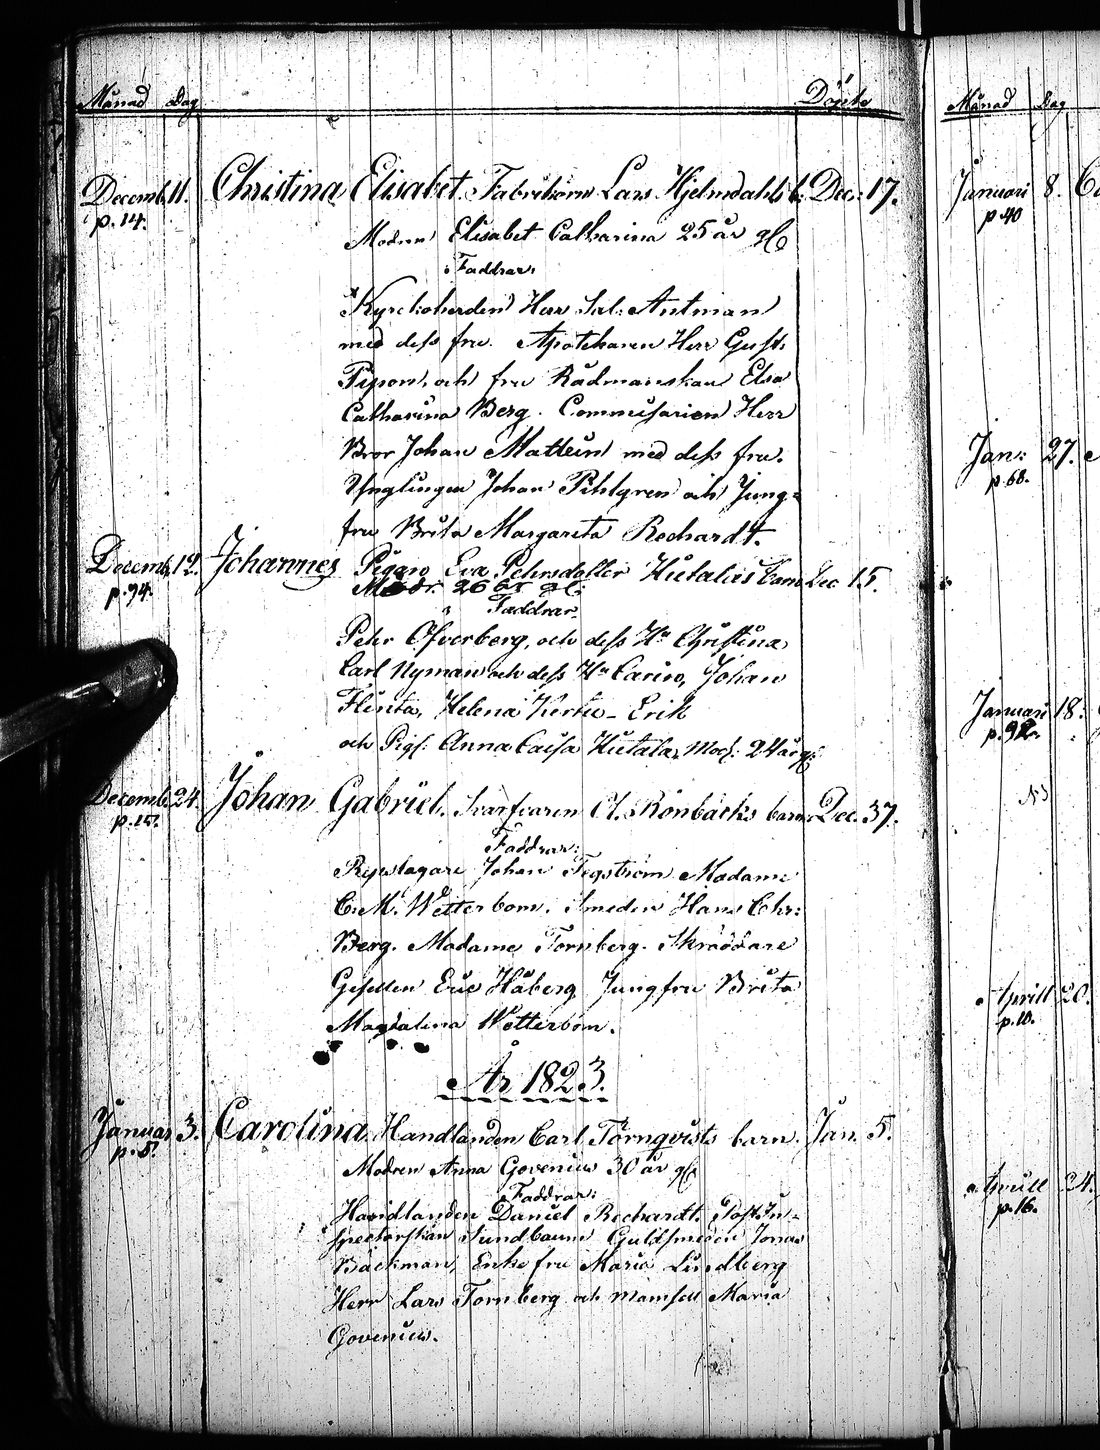 Månad Dag Döpte
Decemb. 11. Christina Elisabet. Fabrikören Lars Hjelmdahls b. Dec: 17.
p. 14.
Modren Elisabet Catharina 25 år gl
Faddrar:
Kyrckoherden Herr Sal: Antman
med dess fru. Apothekaren Herr Gust.
Pipon, och fru Rådmanskan Elsa
Catharina Berg. Commissarien Herr
Bror Johan Mattein med dess fru.
Ynglingen Johan Pihlgren och Jung=
fru Brita Margareta Rechardt.
Decemb. 12. Johannes Pigans Eva Pehrsdotter Hietalas barn Dec 15.
p. 94. Modr. 26 år gl:
Faddrar.
Pehr Öfverberg, och dess Hu Christina
Carl Nyman och dess Hu Carin, Johan
Flinta, Helena Erik
och Pigs: Anna Caisa Hietala, Mod: 24 år gl:
Decemb. 24. Johan Gabriel. Svarfvaren Rönbäcks barn Dec. 37.
p. 15.
Faddrar:
Repslagare Johan Tegström Madame
C: M: Wetterbom. Smeden Hans Chr:
Berg. Madame Tornberg. Skräddare
Gesellen Eric Håberg Jungfru Brita
Magdalena Wetterbom.
År 1823.
Januar 3. Carolina Handlanden Carl Törnqvists barn. Jan. 5.
p. 5.
Modren Anna Govenius 30 år gl
Faddrar:
Handlanden Daniel Rechardt. Post=In=
spectorskan Sundbaum Guldsmeden Jonas
Bäckman, Enke fru Maria Lindberg
Herr Lars Tornberg och Mamsell Maria
Govenius.
Månad Dag
Januari 8.
p. 40
Jan: 27.
p. 68.
Januari 18.
p. 92.
Aprill 20.
p. 10.
Aprill 24.
p. 16.